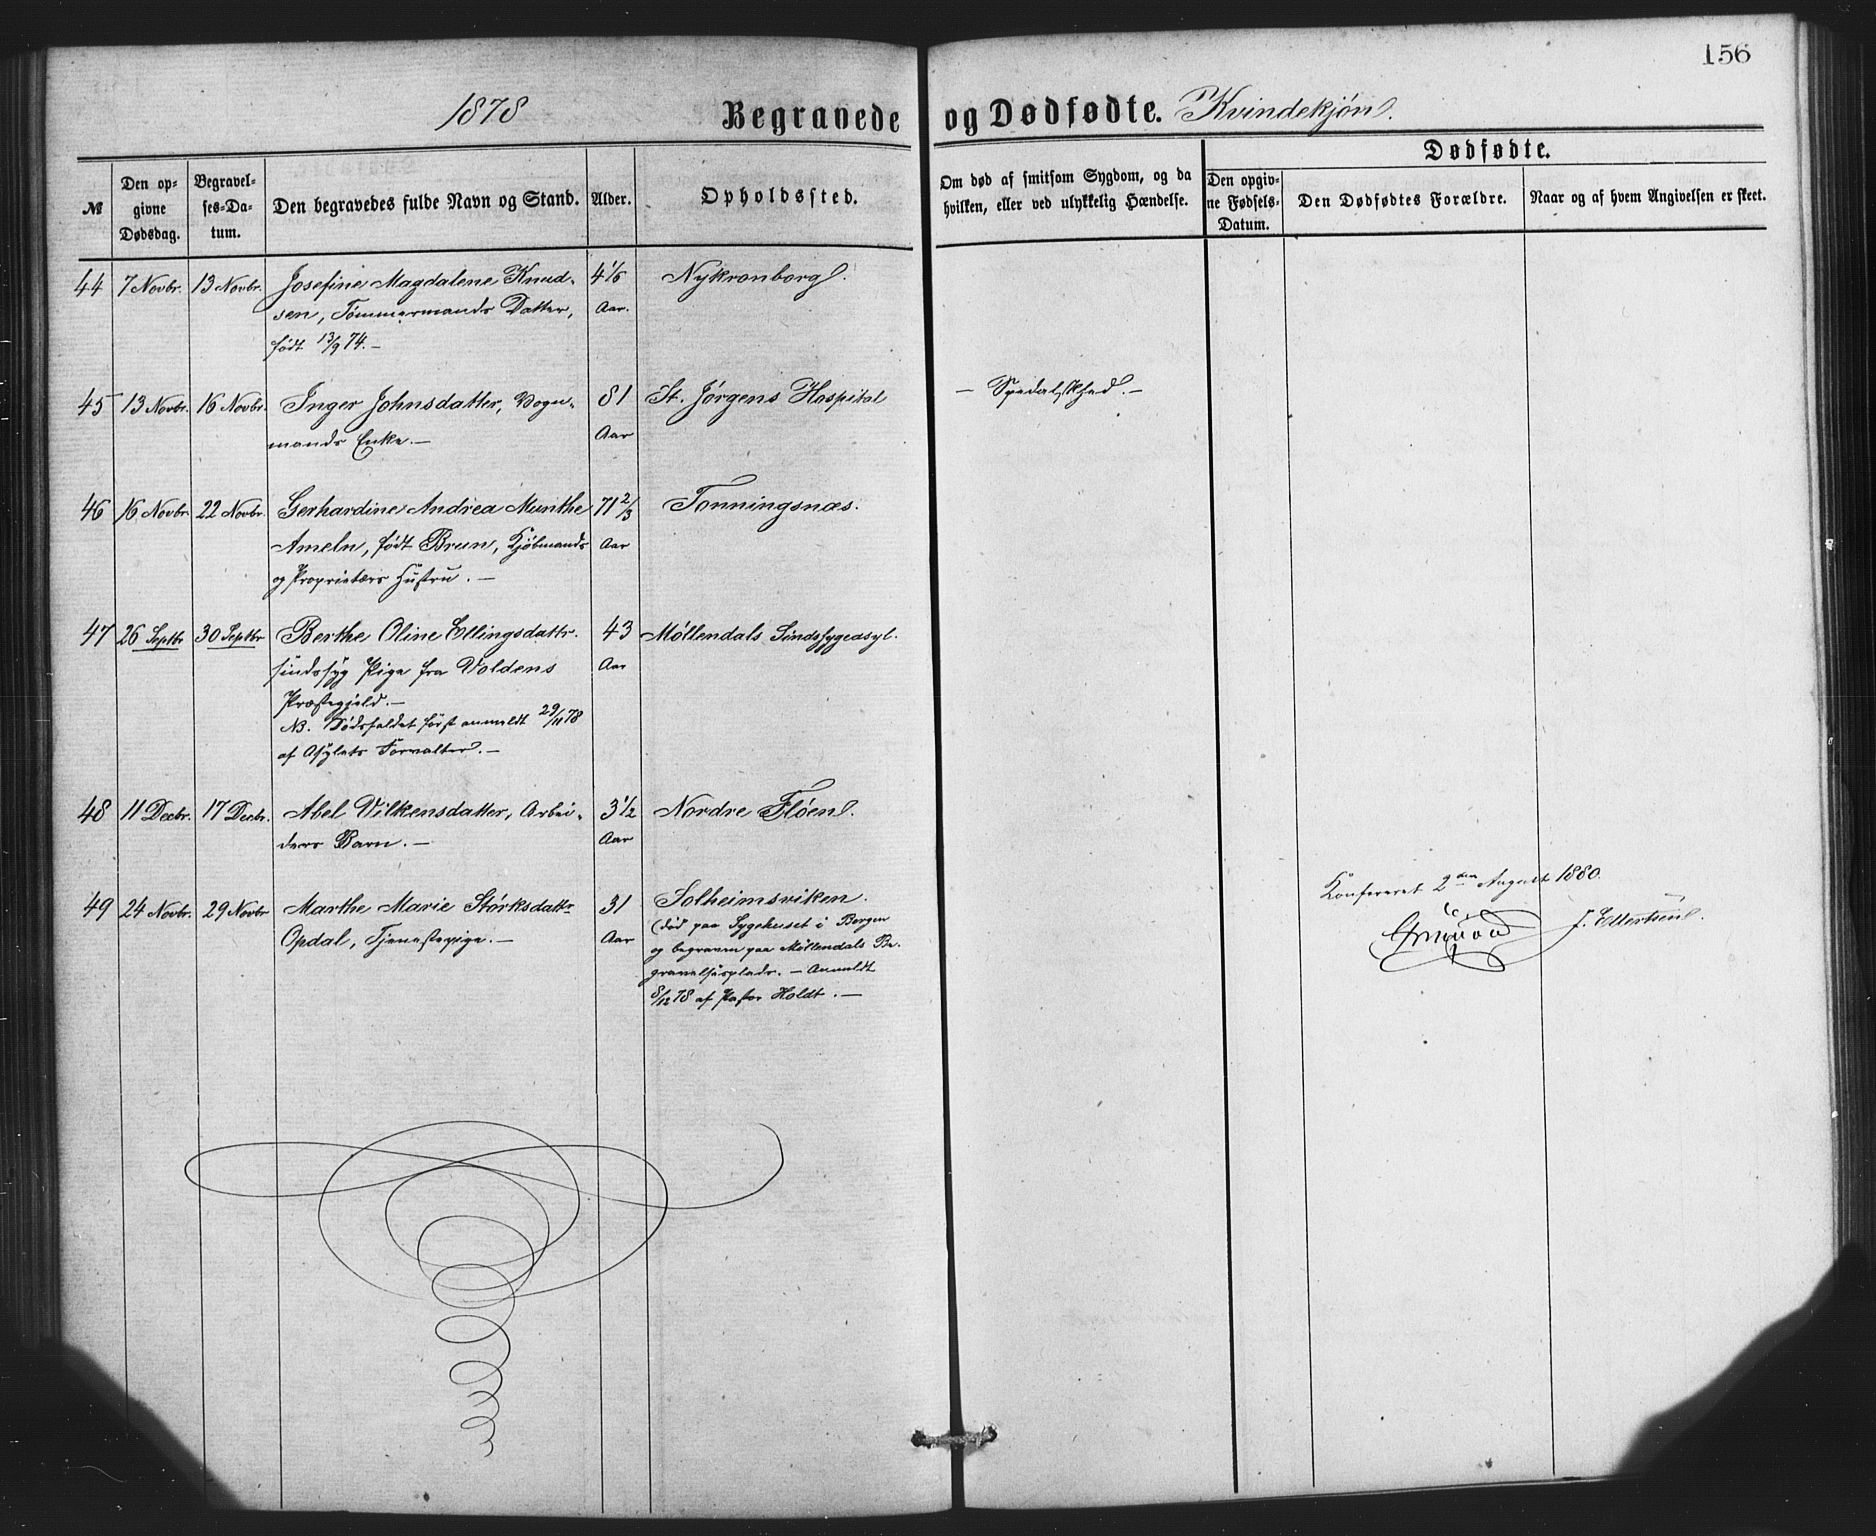 156
1878 Begravede og Dødfødte. Kvindekjøn.
№
Den op-
givne
Dødsdag.
Begravel-
ses-Da-
tum.
Den begravedes fulde Navn og Stand.
Alder.
Opholdssted.
Om død af smitsom Sygdom, og da
hvilken, eller ved ulykkelig Hændelse.
Dødfødte.
Den opgiv-
ne Fødsels-
Datum.
Den Dødfødtes Forældre.
Naar og af hvem Angivelsen er skeet.
44 7 Novbr. 13 Novbr. Josefine Magdalene Knud- 4 1/6 Nykronborg.
sen, Tømmermands Datter, Aar.
født 13/9 74. —
45 13 Novbr. 16 Novbr. Inger Johnsdatter, Vogn- 81 St. Jørgens Hospital — Spedalskhed. —
mands Enke. — Aar
46 16 Novbr. 22 Novbr. Gerhardine Andrea Munthe 71 2/3 Tonningsnæs.
Ameln, født Brun, Kjøbmands Aar
og Proprietærs Hustru. —
47 26 Septbr 30 Septbr Berthe Oline Ellingsdattr. 43 Møllendals Sindssygeasyl.
sindssyg Pige fra Voldens Aar
Præstegjeld. —
NB. Dødsfaldet først anmeldt 29/11 78
af Asylets Forvalter. —
48 11 Decbr. 17 Decbr. Abel Vilkensdatter, Arbei- 3 1/2 Nordre Fløen.
ders Barn. — Aar
49 24 Novbr. 29 Novbr Marthe Marie Størksdattr 31 Solheimsviken.
Opdal, Tjenestepige. — Aar (død paa Sygehuset i Bergen
og begraven paa Møllendals Be-
gravelsesplads. — Anmeldt
8/12 78 af Pastor Holdt. —
Konfereret 2den August 1880.
J. Ellertsen.